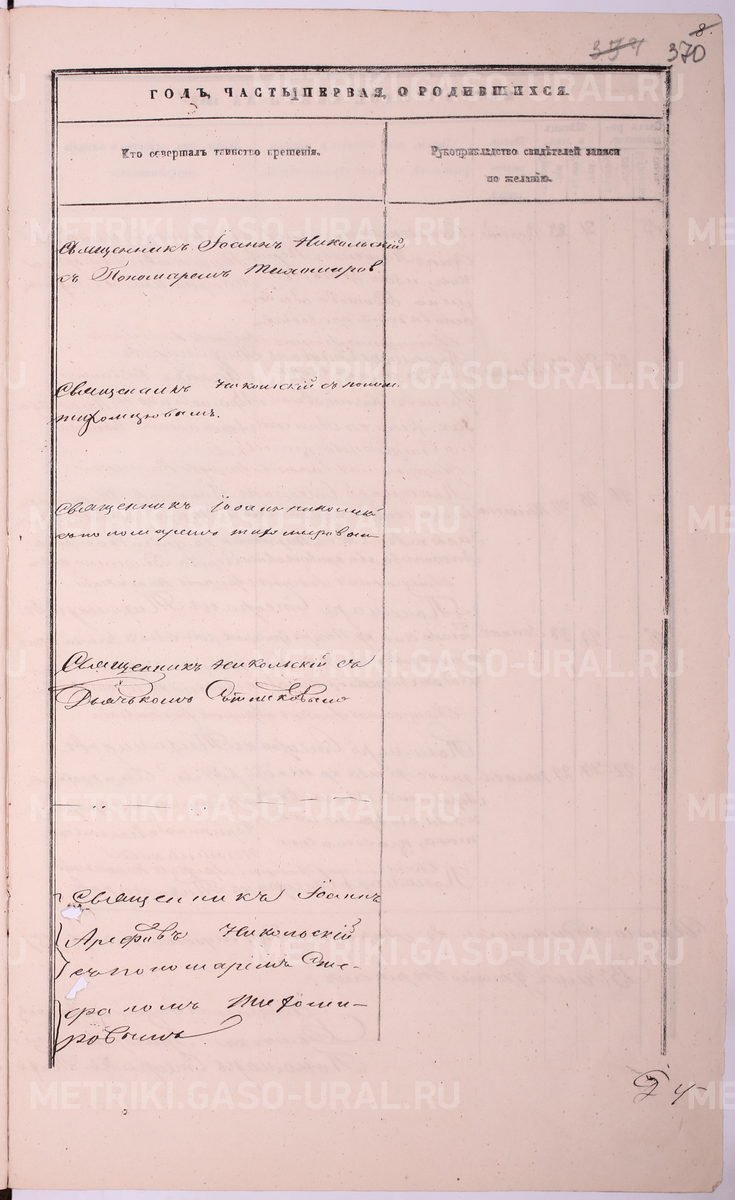 8.
374 370
ГОДЪ, ЧАСТЬ ПЕРВАЯ, О РОДИВШИХСЯ.
Кто совершалъ таинство крещенія.
Рукоприкладство свидѣтелей записи
по желанію.
Священникъ Іоаннъ Никольскій
съ Пономаремъ Тихомиров
Священникъ Никольскій съ поном.
тихомировымъ.
Священникъ Іоаннъ никольскій
съ пономаремъ тихомировым
Священникъ никольскій съ
Дьячькомъ
Священникъ Іоаннъ
Арефовъ Никольскій
съ пономарёмъ Сте-
фаномъ Тихоми-
ровымъ
METRIKI.GASO-URAL.RU